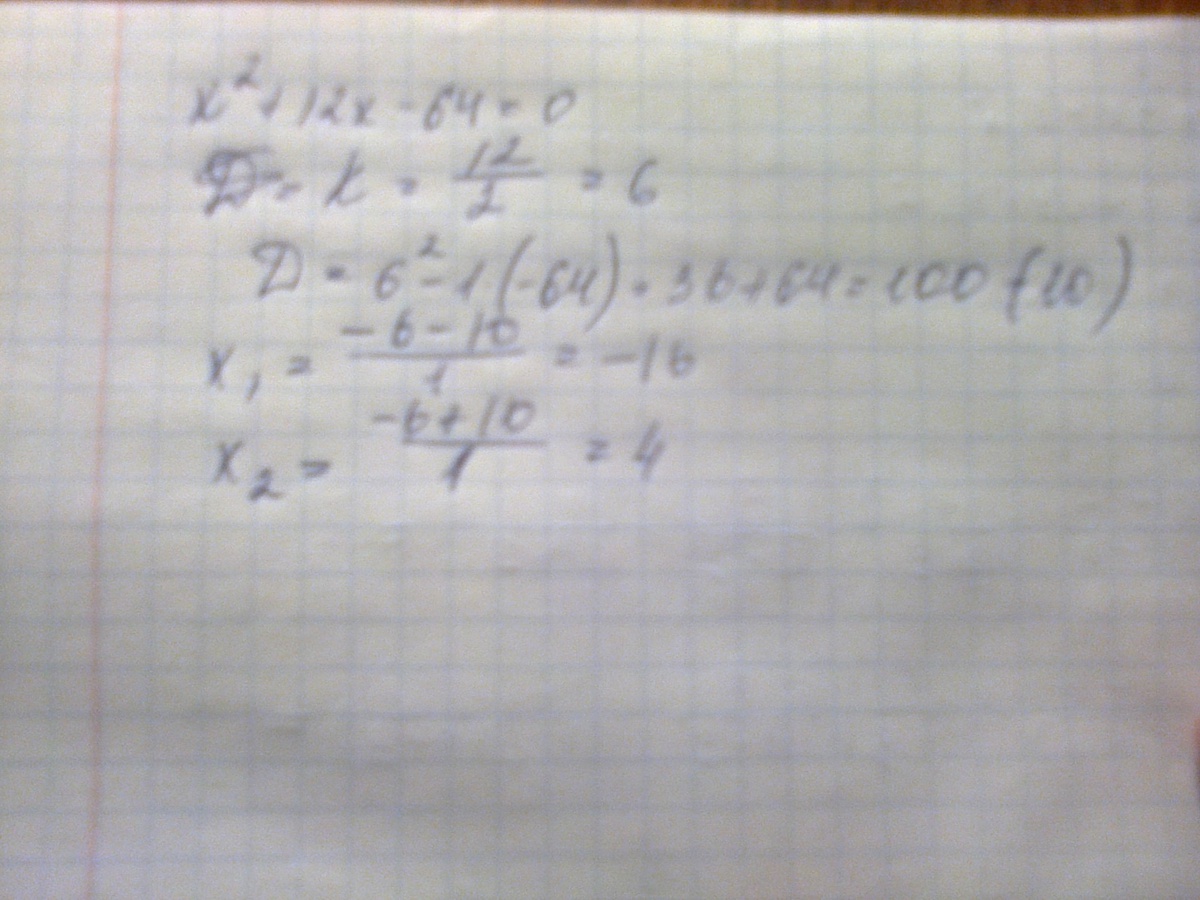 x² + 12x - 64 = 0
k = 12/2 = 6
D = 6² - 1(-64) = 36 + 64 = 100 (10)
x₁ = (-6 - 10)/1 = -16
x₂ = (-6 + 10)/1 = 4